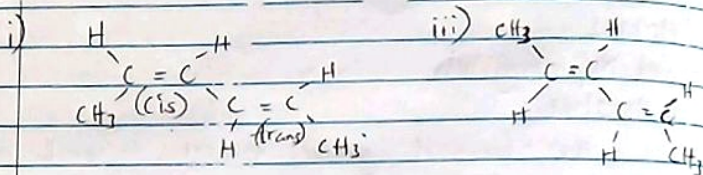 i) H H
C = C H
CH3 (Cis) C = C
H (trans) CH3
iii) CH3 H
C = C H
H C = C
H CH3